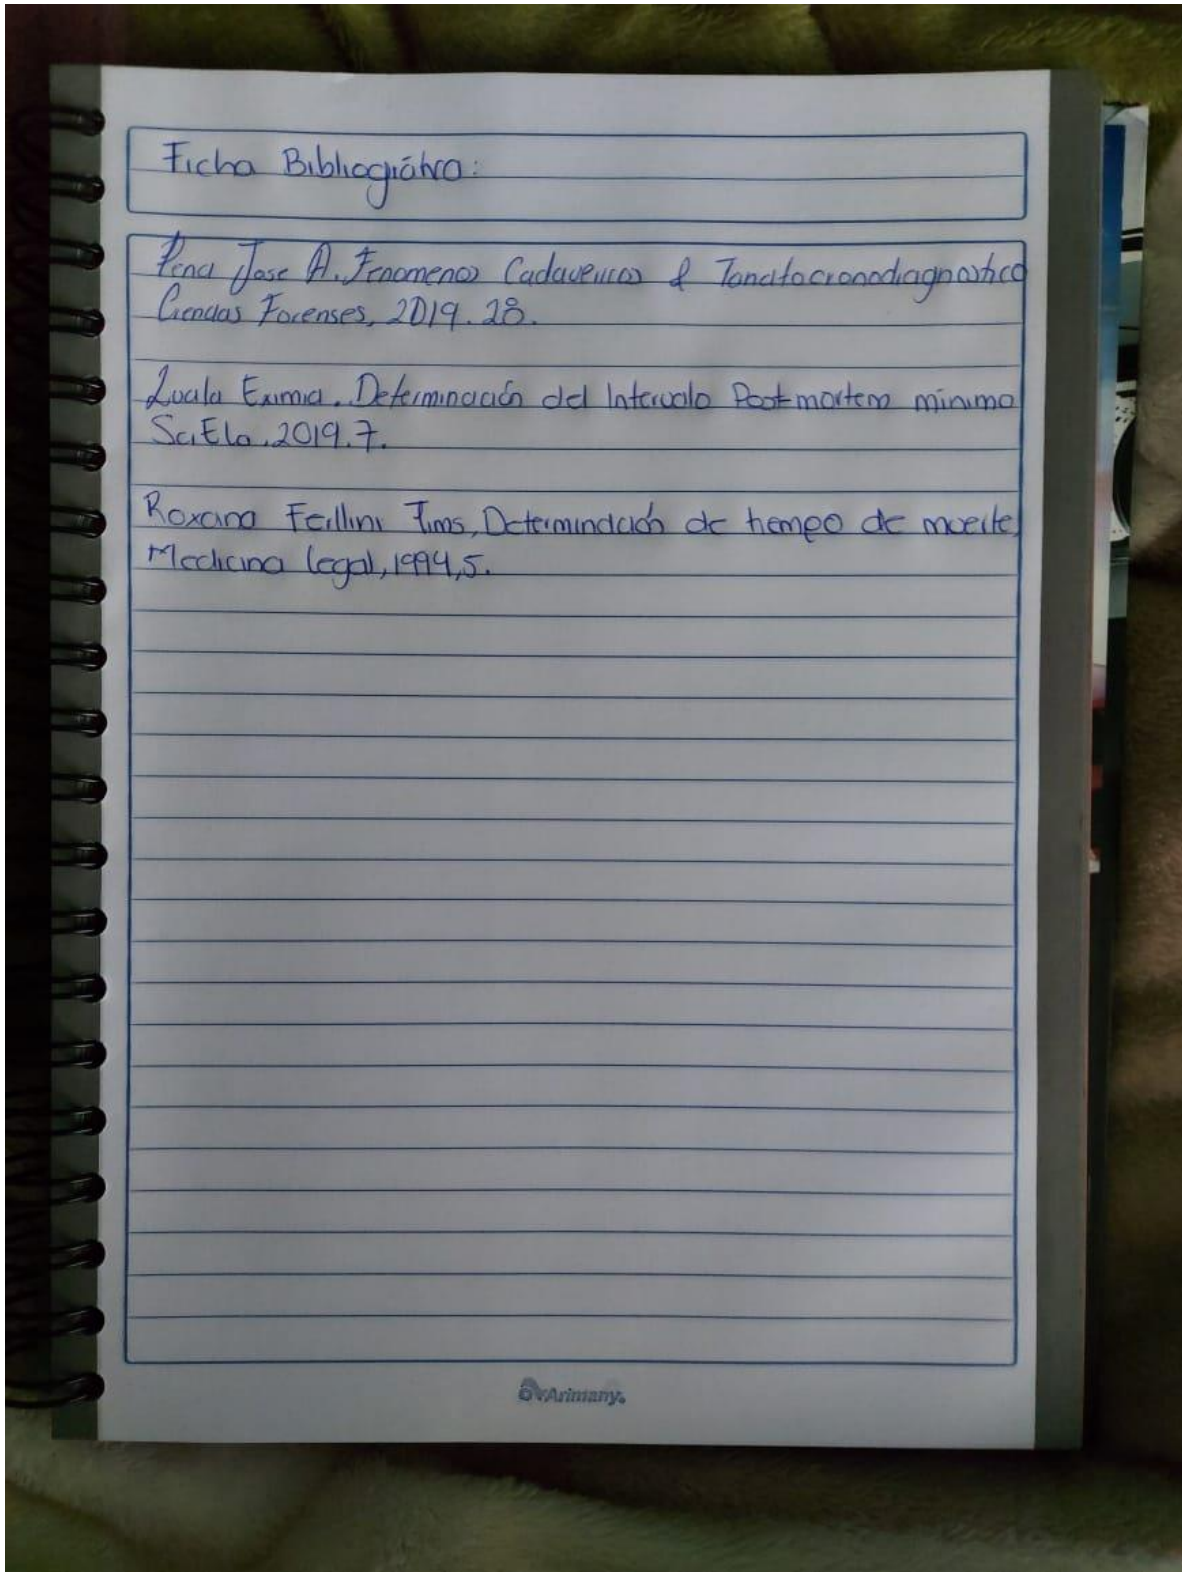 Ficha Bibliográfica:
Pena Jose A. Fenomenos Cadavericos & Tanatocronodiagnostico
Ciencias Forenses, 2019. 28.
Lucila Eximia. Determinación del Intervalo Post-mortem minimo
SciElo. 2019. 7.
Roxana Ferllini Tims, Determinación de tiempo de muerte,
Medicina legal, 1994, 5.
Arimany